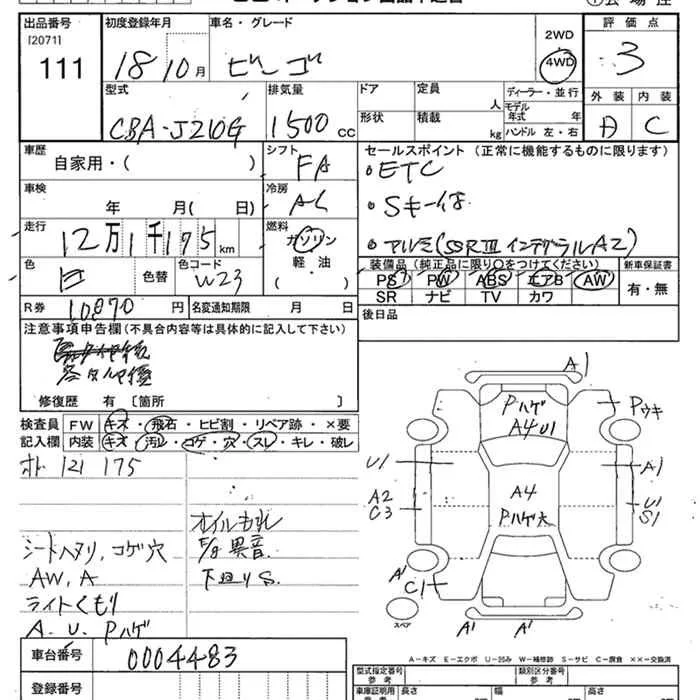 出品番号
[2071]
111
初度登録年月
18 10月
車名・グレード
ビーゴ
2WD
4WD
評価点
3
型式
CBA-J210G
排気量
1500 cc
ドア
定員
人
ディーラー・並行
形状
積載
kg
モデル年式 年
ハンドル 左・右
外装
内装
A
C
車歴
自家用・( )
シフト
FA
車検
年 月( 日)
冷房
AC
走行
12万1千175km
燃料
ガソリン
軽・油
( )
色
白
色替
色コード
W23
R券
10870円
名変通知期限 月 日
セールスポイント (正常に機能するものに限ります)
・ETC
・Sキー付
・アルミ(SSRⅢ インテグラルA2)
装備品(純正品に限り○をつけてください)
新車保証書
PS PW ABS エアB AW
SR ナビ TV カワ
有・無
後日品
注意事項申告欄(不具合内容等は具体的に記入して下さい)
修復歴 有〔箇所 〕
検査員記入欄
FW キズ・飛石・ヒビ割・リペア跡・×要
内装 キズ・汚レ・コゲ・穴・スレ・キレ・破レ
オド 121175
シートヘタリ、コゲ穴
AW、A
ライトくもり
A.U.Pハゲ
オイルもれ
異音
下廻りS.
A1
Pハゲ
A4 U1
Pウキ
U1
A1
A2
C3
A4
Pハゲ大
U1
S1
A1
C1
スペア
A1
A1
A-キズ E-エクボ U-凹み W-補修跡 S-サビ C-腐食 ××-交換済
車台番号
0004483
登録番号
型式指定番号
参考
類別区分番号
参考
車庫証明用
長さ
幅
高さ